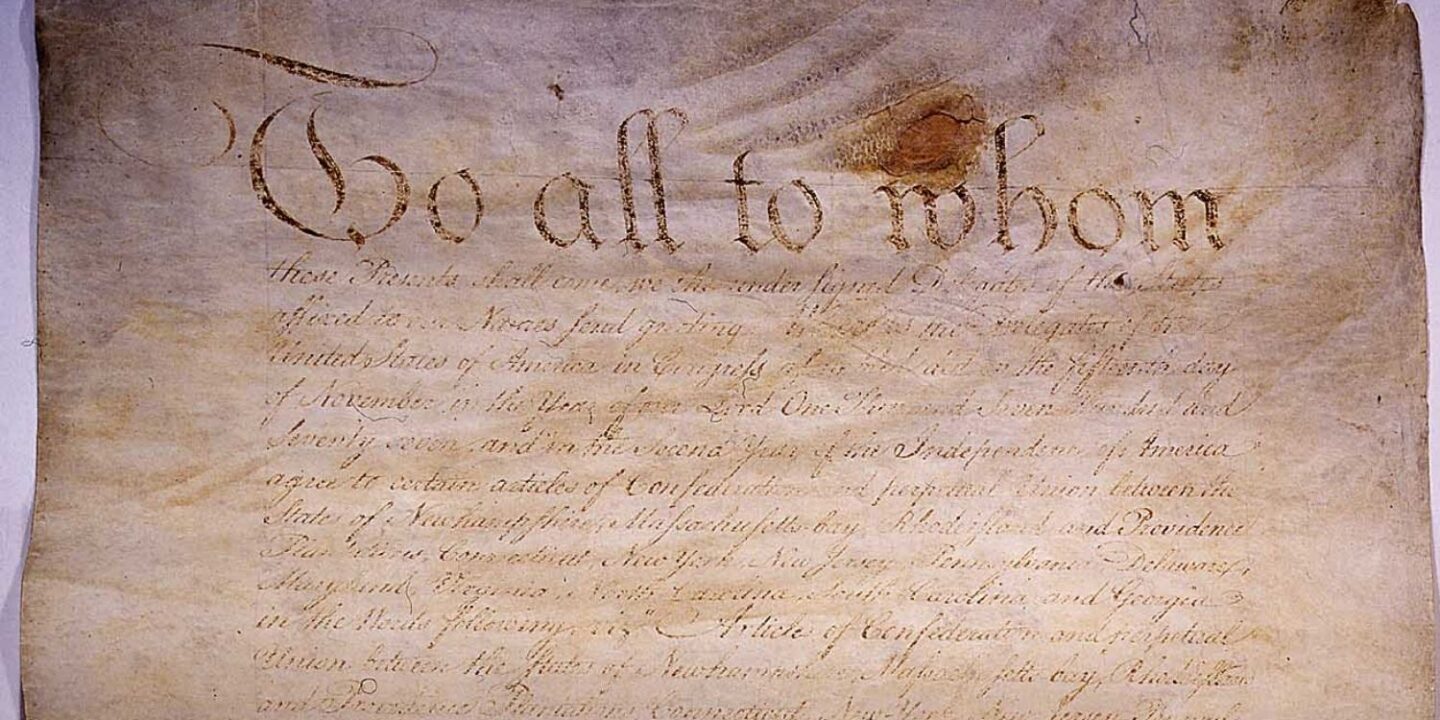 To all to whom
these Presents shall come, we the undersigned Delegates of the States
affixed to our Names send greeting. Whereas the Delegates of the
United States of America in Congress assembled did on the fifteenth day
of November in the Year of our Lord One Thousand Seven Hundred and
Seventy seven, and in the Second Year of the Independence of America
agree to certain articles of Confederation and perpetual Union between the
States of Newhampshire, Massachusetts-bay, Rhodeisland and Providence
Plantations, Connecticut, New York, New Jersey, Pennsylvania, Delaware,
Maryland, Virginia, North-Carolina, South-Carolina and Georgia
in the Words following, viz. "Articles of Confederation and perpetual
Union between the States of Newhampshire, Massachusetts-bay, Rhodeisland
and Providence Plantations, Connecticut, New-York, New-Jersey,